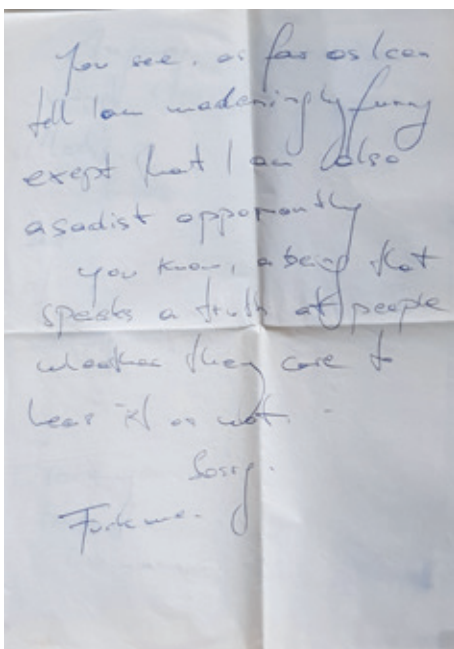 You see, as far as I can
tell I am madeningly funny
exept that I am also
a sadist opporontly
you know, a being that
speaks a truth at people
wheather they care to
hear it or not. -
Sorry.
Fuck me.